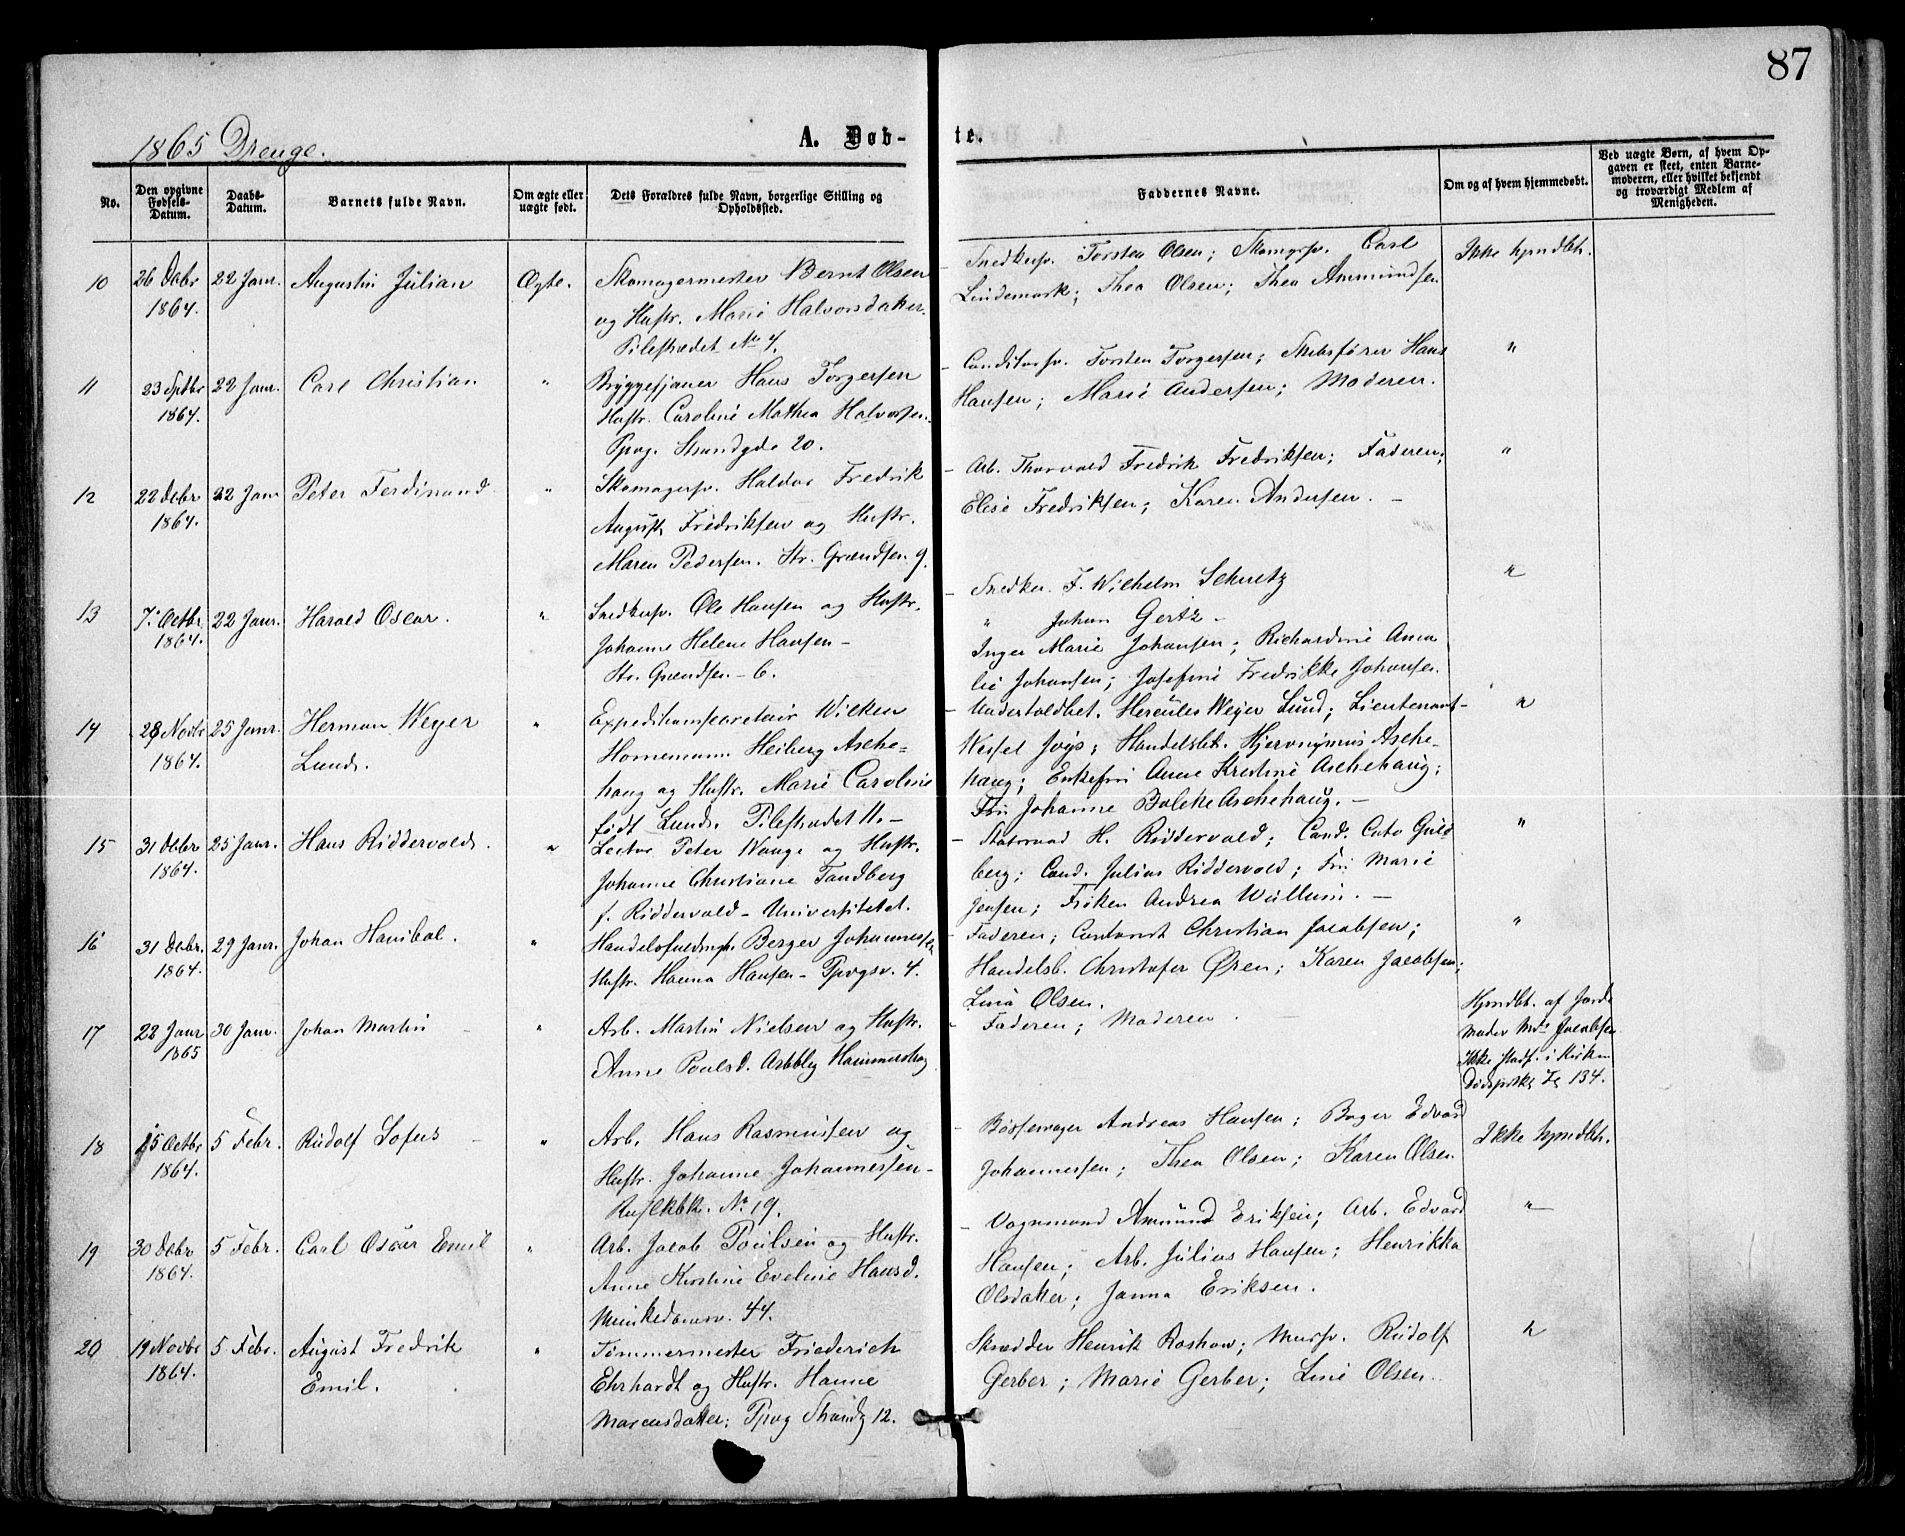 87
1865 Drenge.
A. Døb-
te.
No.
Den opgivne Fødsels-Datum.
Daabs-Datum.
Barnets fulde Navn.
Om ægte eller uægte født.
Dets Forældres fulde Navn, borgerlige Stilling og Opholdssted.
Faddernes Navne.
Om og af hvem hjemmedøbt.
Ved uægte Børn, af hvem Op-
gaven er skeet, enten Barne-
moderen, eller hvilket bekjendt
og troværdigt Medlem af
Menigheden.
10 26 Debr 1864. 22 Janr. Augustin Julian Ægte.
Skomagermester Bernt Olsen
og Hustr. Marie Halvorsdatter.
Pilestrædet No 7.
Snedkersv. Torsten Olsen; Skomgrsv. Carl
Lindemark; Thea Olsen; Thea Ammundsen.
Ikke hjmdbt.
11 23 Septbr 1864. 22 Janr. Carl Christian "
Bryggesjauer Hans Torgersen
Hustr. Caroline Mathea Halvorsen.
Ppvg. Strandgde 20.
Conditorsv. Torsten Torgersen; Skibsfører Hans
Hansen; Marie Andersen; Moderen.
"
12 22 Debr 1864. 22 Janr Peter Ferdinand "
Skomagersv. Haldor Fredrik
August Fredriksen og Hustr.
Maren Pedersen. Str. Grændsen 9.
Arb. Thorvald Fredrik Fredriksen; Faderen;
Elise Fredriksen; Karen Andersen. -
"
13 7. Octbr 1864. 22 Janr. Harald Oscar. "
Snedkersv. Ole Hansen og Hustr.
Johanne Helene Hansen -
Str. Grændsen - 6.
Snedker. F. Wilhelm Schultz
" Johan Gertz -
Inger Marie Johansen; Richardine Ama
lie Johansen; Josefine Fredrikke Johansen.
"
14 28 Novbr 1864. 25 Janr. Herman Weyer
Lund. "
Expeditionssecretair Wilken
Hornemann Heiberg Asche-
haug og Hustr. Marie Caroline
født Lund. Pilestrædet 11. -
Undertoldbet. Hercules Weyer Lund; Lieutenant
Wessel Handelsbet. Hjeronymus Asche-
haug; Enkefru Anne Kristine Aschehaug;
Fru Johanne Bolette Aschehaug. -
"
15 31 Debr 1864. 25 Janr. Hans Riddervold. "
Lector Peter Waage og Hustr.
Johanne Christiane Tandberg
f. Riddervold - Universitetet.
Statsraad H. Riddervold; Cand. Cato Guld
berg; Cand. Julius Riddervold; Fru Marie
Jensen; Frøken Andrea Wullum. -
"
16 31 Debr. 1864. 29 Janr. Johan Hanibal. "
Handelsfuldmgt. Berger Johannessen
Hustr. Hanna Hansen - Ppvgsv. 4.
Faderen; Contorist Christian Jacobsen;
Handelsb. Christofer Øren; Karen Jacobsen;
Lina Olsen.
"
17 22 Janr 1865 30 Janr. Johan Martin - "
Arb. Martin Nielsen og Hustr.
Anne Poulsd. Arbblg Hammersborg
Faderen; Moderen.
Hjmdbt. af Jorde
moder Jacobsen
Ikke stadf. i Kirken
134.
18 15 Octbr 1864. 5 Febr. Rudolf Sofus - "
Arb. Hans Rasmussen og
Hustr. Johanne Johannessen -
No 19.
Bøssemager Andreas Hansen; Bager Edvard
Johannessen; Thea Olsen; Karen Olsen
Ikke hjmdbt.
19 30 Debr 1864. 5 Febr. Carl Oscar Emil "
Arb. Jacob Poulsen og Hustr.
Anne Kirstine Eveline Hansd.
Munkedamsv. 44.
Vognmand Ammund Eriksen; Arb. Edvard
Hansen; Arb. Julius Hansen; Henrikka
Olsdatter; Janna Eriksen.
"
20 19 Novbr 1864. 5 Febr. August Fredrik
Emil. "
Tømmermester Friederich
Ehrhardt og Hustr. Hanne
Marcusdatter; Ppvg Strandg 12.
Skrædder Henrik Roshow; Mursv. Rudolf
Gerber; Marie Gerber; Line Olsen.
"